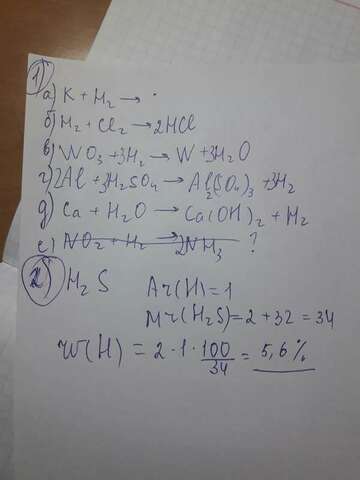 1)
а) K + H₂ → .
б) H₂ + Cl₂ → 2HCl
в) WO₃ + 3H₂ → W + 3H₂O
г) 2Al + 3H₂SO₄ → Al₂(SO₄)₃ + 3H₂
д) Ca + H₂O → Ca(OH)₂ + H₂
е) NO₂ + H₂ → 2NH₃ ?
2) H₂S Ar(H) = 1
Mr(H₂S) = 2 + 32 = 34
W(H) = 2 · 1 · 100/34 = 5,6%